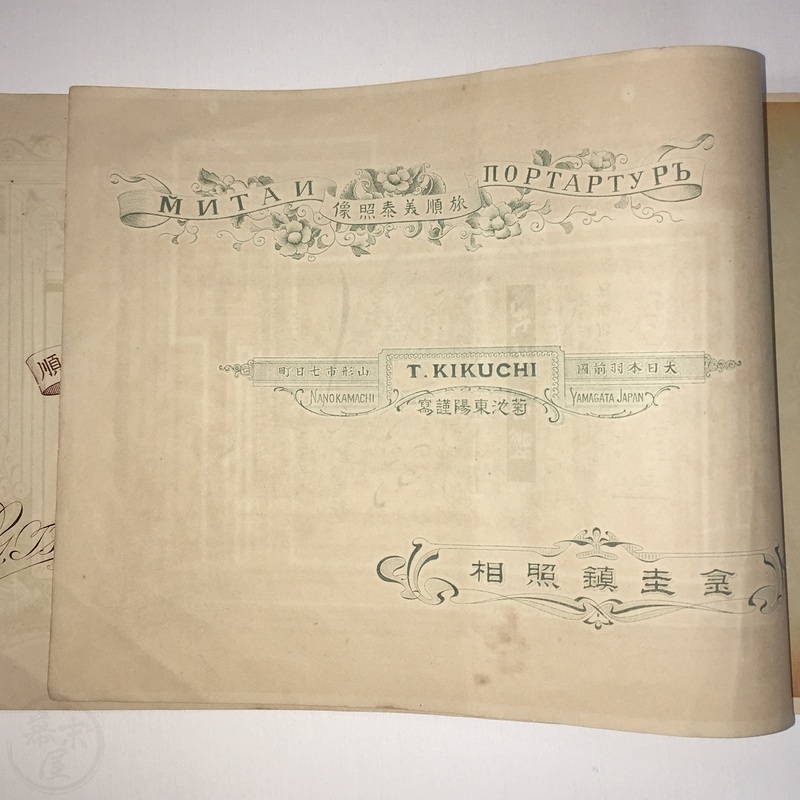 МИТАИ
旅順美泰照像
ПОРТАРТУРЪ
大日本羽前國
T. KIKUCHI
山形市七日町
NANOKAMACHI
菊池東陽謹寫
YAMAGATA JAPAN
金圭鎮照相
順
幕末屋